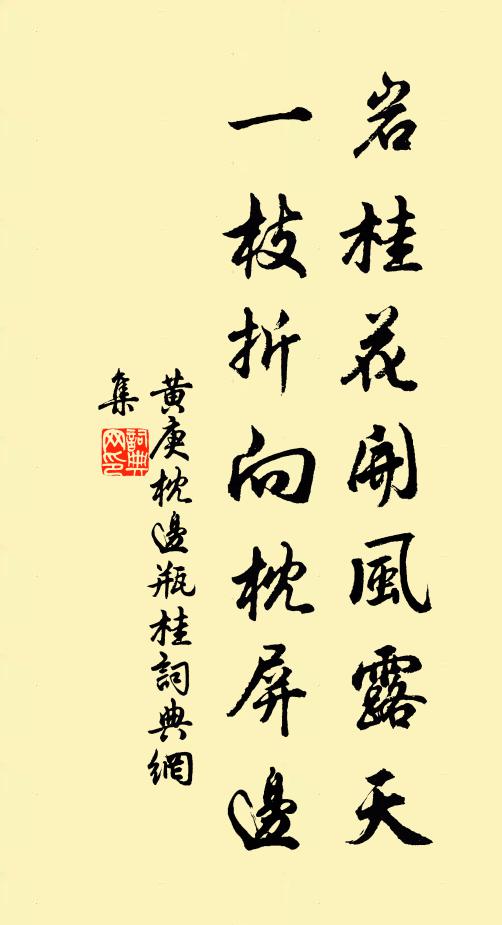 岩桂花開風露天
一枝折向枕屏邊
黄庚枕邊瓶桂詞典網
集
詞典
网印